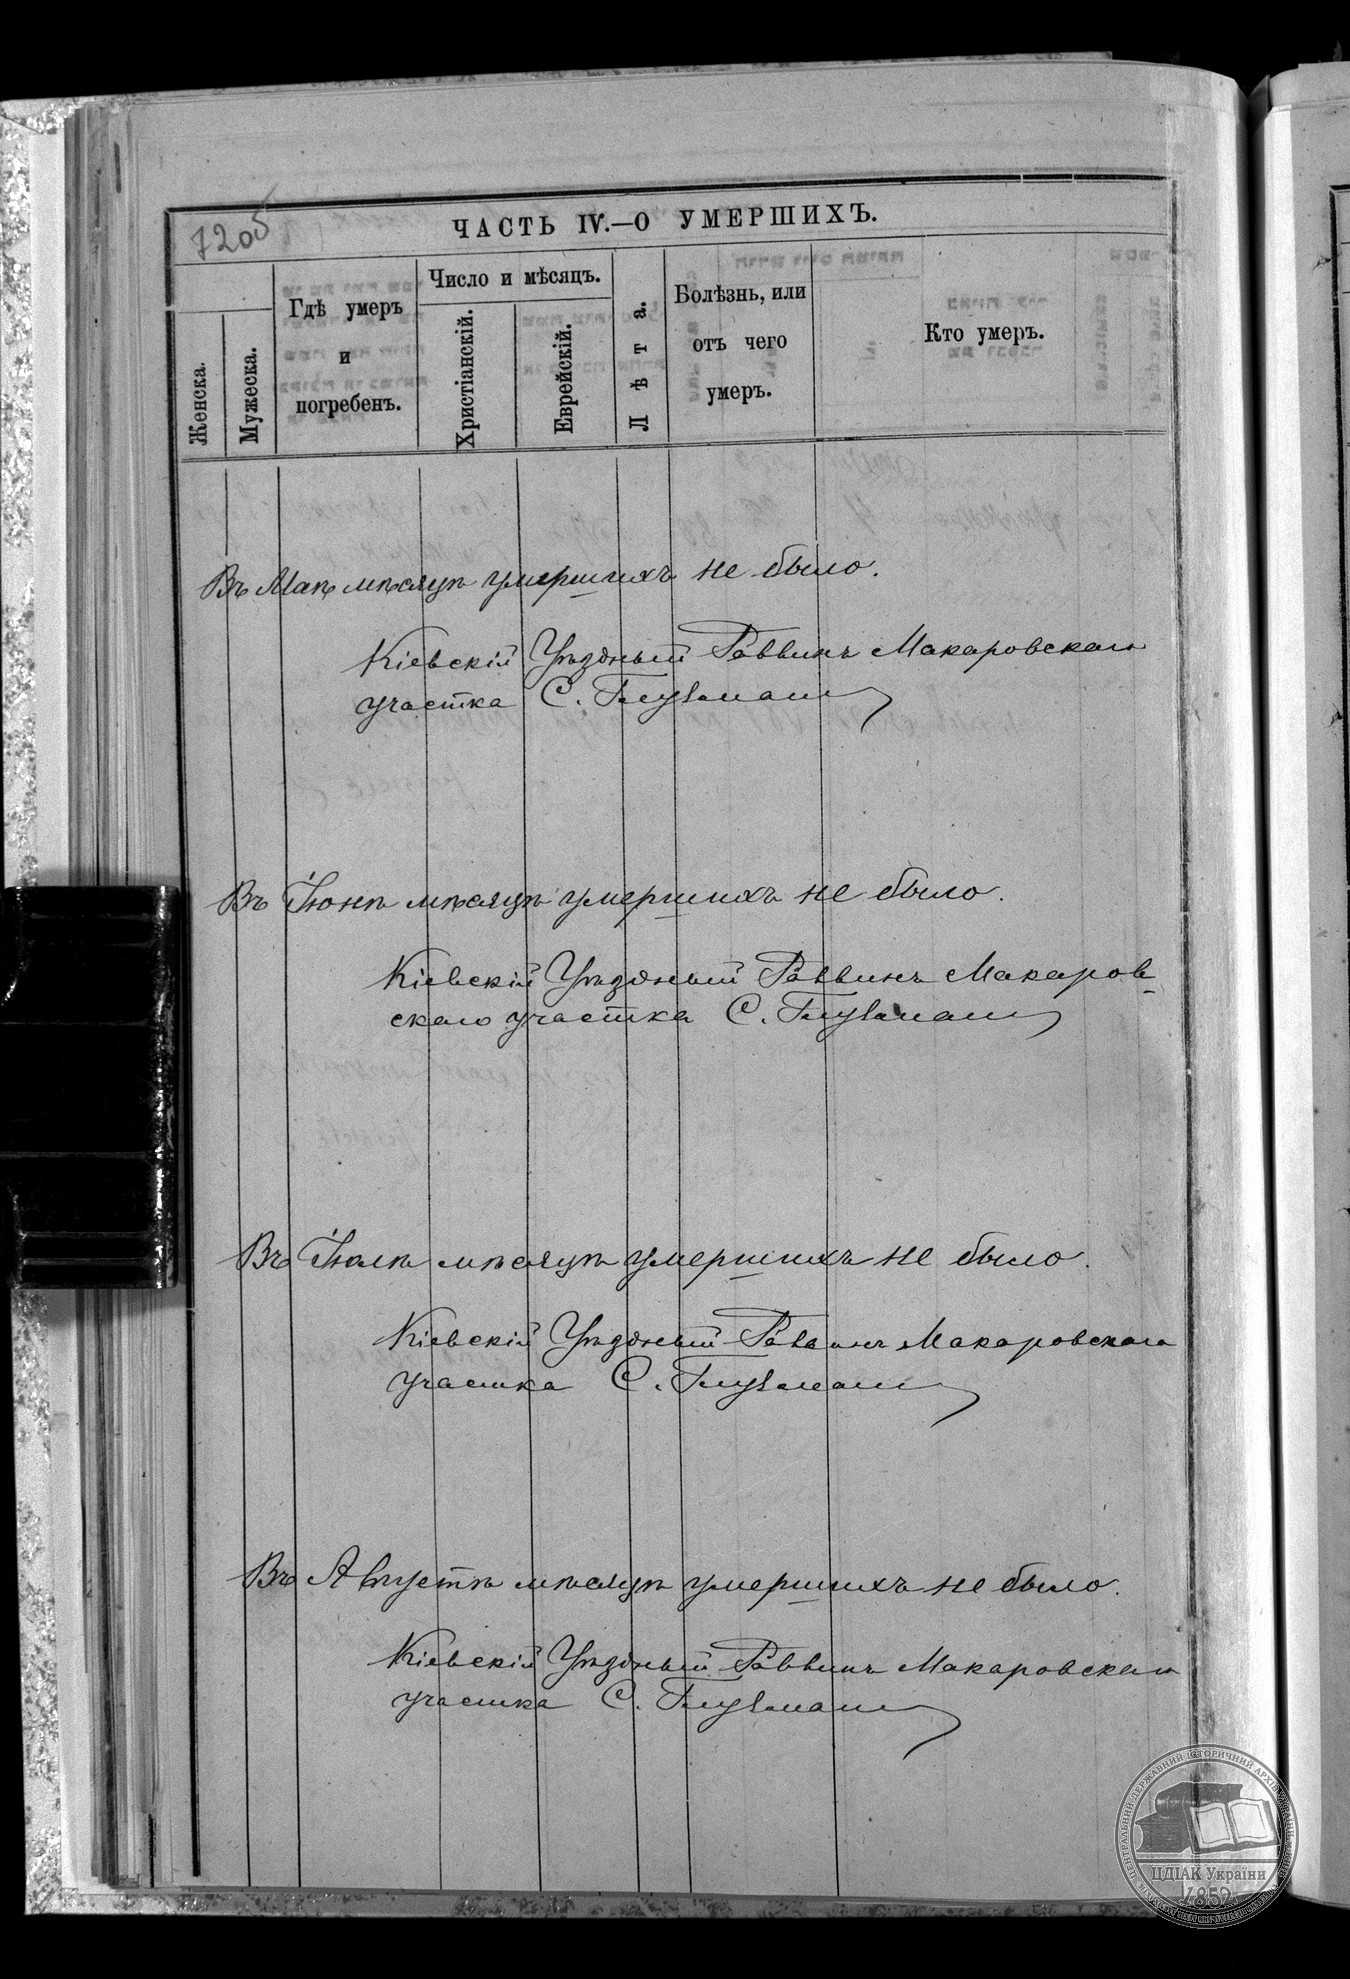 7205
ЧАСТЬ IV.—О УМЕРШИХЪ.
Женска.
Мужеска.
Гдѣ умеръ
и
погребенъ.
Число и мѣсяцъ.
Христіанскій.
Еврейскій.
Лѣта.
Болѣзнь, или
отъ чего
умеръ.
Кто умеръ.
Въ Маѣ мѣсяцѣ умершихъ не было.
Кіевскій Уѣздный Раввинъ Макаровскаго
участка С. Глузман
Въ Іюнѣ мѣсяцѣ умершихъ не было.
Кіевскій Уѣздный Раввинъ Макаров-
скаго участка С. Глузман
Въ Іюлѣ мѣсяцѣ умершихъ не было.
Кіевскій Уѣздный Раввинъ Макаровскаго
участка С. Глузман
Въ Августѣ мѣсяцѣ умершихъ не было.
Кіевскій Уѣздный Раввинъ Макаровскаго
участка С. Глузман
ЦЕНТРАЛЬНИЙ ДЕРЖАВНИЙ ІСТОРИЧНИЙ АРХІВ УКРАЇНИ
ЦДІАК України
1852